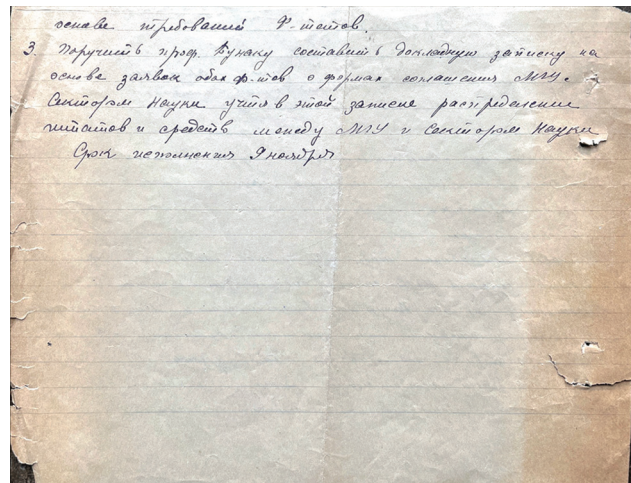 основе требований Ф-тетов.
3. Поручить проф. Бунаку составить докладную записку на
основе заявок обоих ф-тов о формах соглашения МГУ с
Сектором Науки учтя в этой записке распределении
штатов и средств между МГУ и Сектором Науки
Срок исполнения 9 ноября